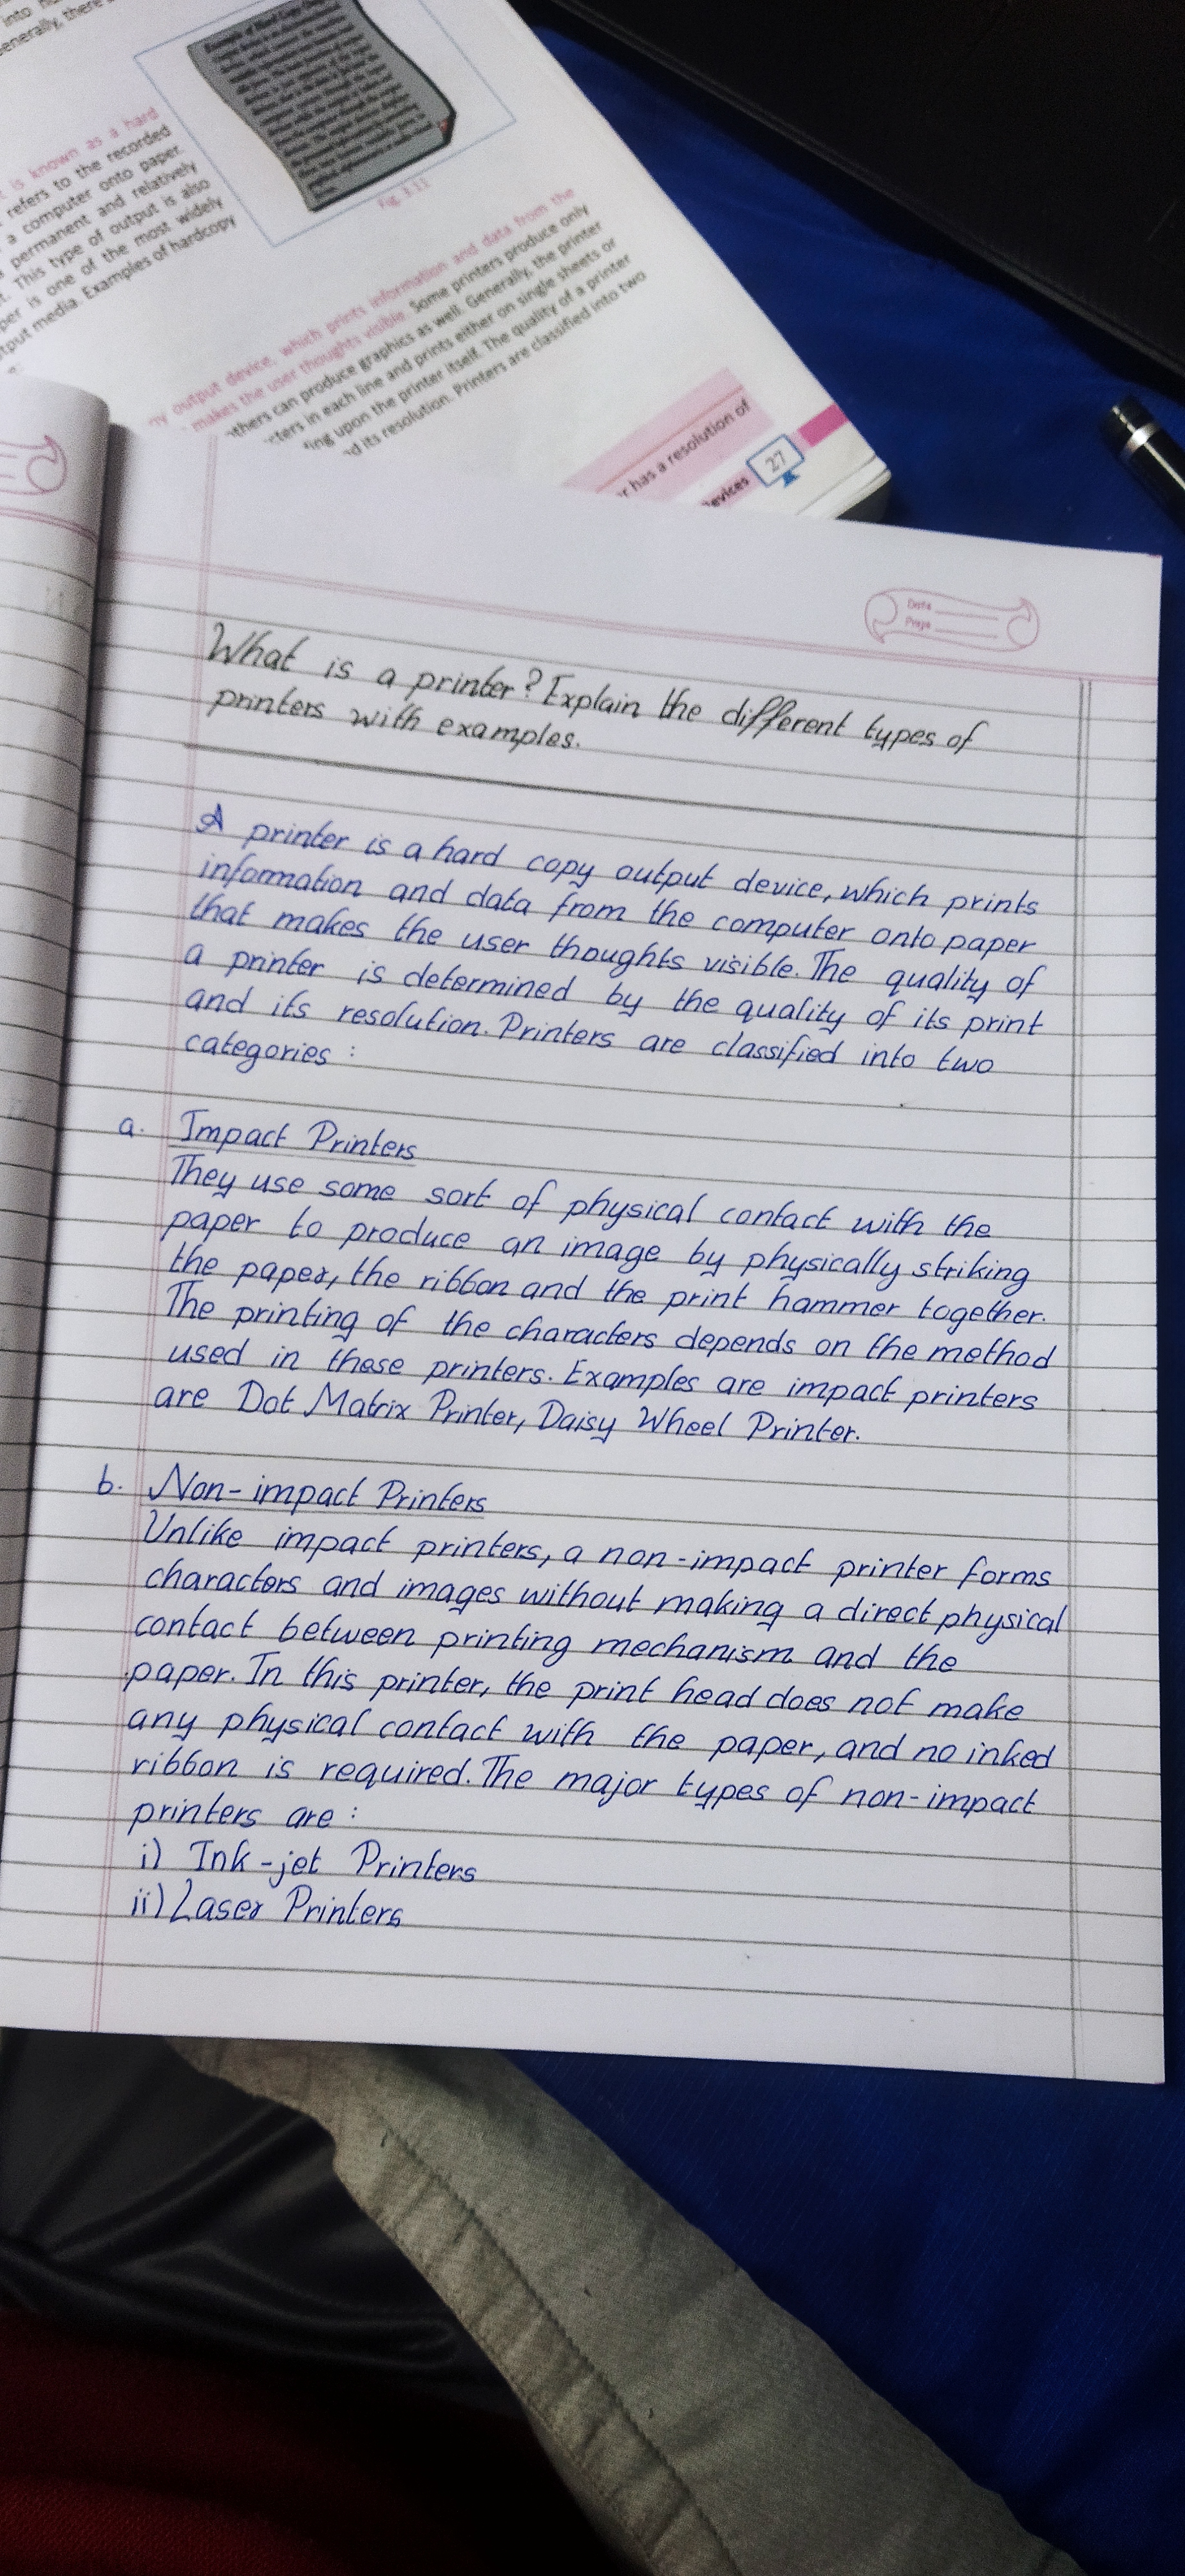 into
Generally, there
is known as a hard
refers to the recorded
a computer onto paper.
permanent and relatively
t. This type of output is also
per is one of the most widely
tput media. Examples of hardcopy
Fig. 3.11
output device, which prints information and data from the
makes the user thoughts visible. Some printers produce only
others can produce graphics as well. Generally, the printer
cters in each line and prints either on single sheets or
ing upon the printer itself. The quality of a printer
d its resolution. Printers are classified into two
r has a resolution of
evices 27
Date
Page
What is a printer? Explain the different types of
printers with examples.
A printer is a hard copy output device, which prints
information and data from the computer onto paper
that makes the user thoughts visible. The quality of
a printer is determined by the quality of its print
and its resolution. Printers are classified into two
categories :
a. Impact Printers
They use some sort of physical contact with the
paper to produce an image by physically striking
the paper, the ribbon and the print hammer together.
The printing of the characters depends on the method
used in these printers. Examples are impact printers
are Dot Matrix Printer, Daisy Wheel Printer.
b. Non-impact Printers
Unlike impact printers, a non-impact printer forms
characters and images without making a direct physical
contact between printing mechanism and the
paper. In this printer, the print head does not make
any physical contact with the paper, and no inked
ribbon is required. The major types of non-impact
printers are :
i) Ink-jet Printers
ii) Laser Printers